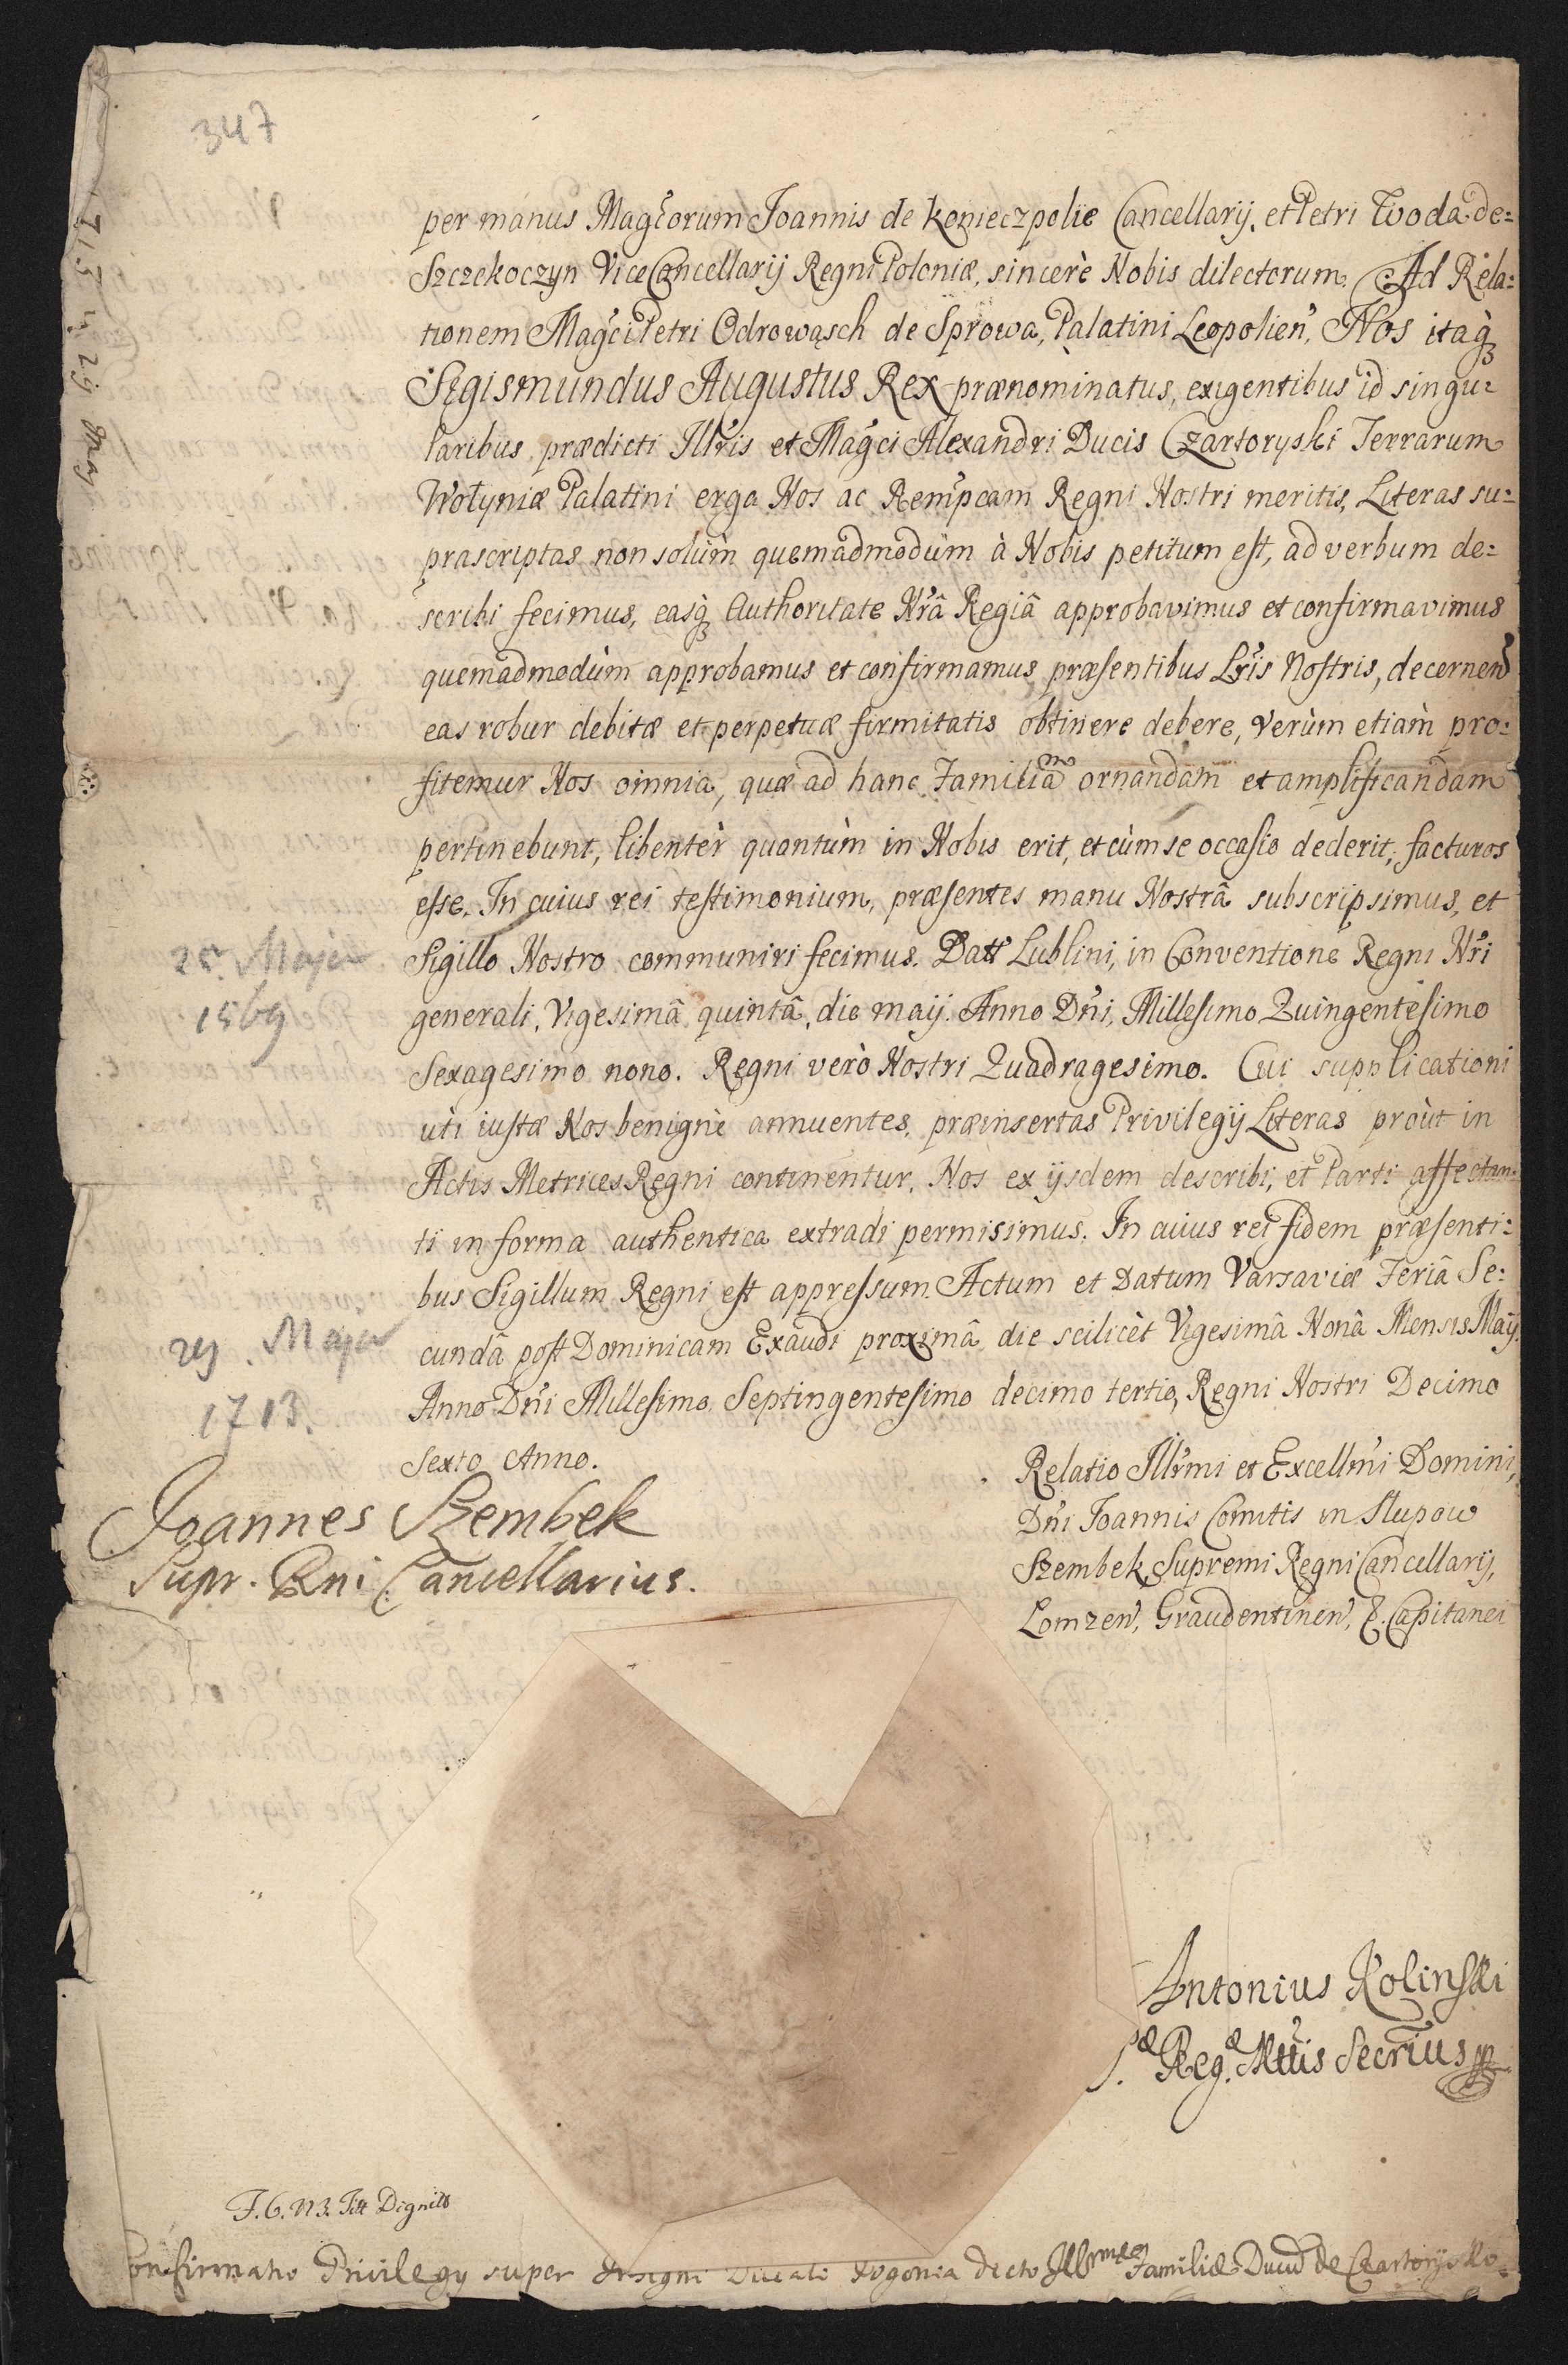 347
per manus Mag̃corum Joannis de Konieczpolie Cancellarij, et Petri Woda de=
Szczekoczyn ViceCancellarij Regni Poloniæ, sincerè Nobis dilectorum. Ad Rela=
tionem Mag̃ci Petri Odrowąsch de Sprowa, Palatini Leopolien̄, Nos itaq̨
Sigismundus Augustus Rex prænominatus, exigentibus id singu=
laribus prædicti Ill̃ris et Mag̃ci Alexandri Ducis Czartoryski Terrarum
Wołyniæ Palatini erga Nos ac Remp̃cam Regni Nostri meritis, Literas su=
prascriptas non solùm quemadmodùm à Nobis petitum est, ad verbum de=
scribi fecimus, easq̨ Authoritate Nr̃â Regiâ approbavimus et confirmavimus
quemadmodùm approbamus et confirmamus præsentibus Lr̃is Nostris, decernen̄
eas robur debitæ et perpetuæ firmitatis obtinere debere, verùm etiàm pro=
fitemur Nos omnia, quæ ad hanc Familiam ornandam et amplificandam
pertinebunt, libentèr quantùm in Nobis erit, et cùm se occasio dederit, facturos
esse. In cuius rei testimonium, præsentes manu Nostrâ subscripsimus, et
Sigillo Nostro communiri fecimus. Datt Lublini, in Conventione Regni Nr̃i
generali, Vigesimâ quintâ, die maij. Anno Dñi, Millesimo Quingentesimo
Sexagesimo nono. Regni verò Nostri Quadragesimo. Cui supplicationi
25. Majus
1569
uti iustæ Nos benignè annuentes, præinsertas Privilegij Literas proùt in
Actis Metrices Regni continentur, Nos ex ijsdem describi, et Parti affectan=
ti in forma authentica extradi permisimus. In cuius rei fidem præsenti=
bus Sigillum Regni est appressum. Actum et Datum Varsaviæ Feriâ Se=
cundâ post Dominicam Exaudi proximâ die scilicèt Vigesimâ Nonâ Mensis Maij
Anno Dñi Millesimo Septingentesimo decimo tertio, Regni Nostri Decimo
Sexto Anno.
29. Majus
1713.
Relatio Ill̃rmi et Excellm̃i Domini,
Dñi Joannis Comitis in Slupow
Szembek Supremi Regni Cancellarij,
Lomzen̄, Graudentinen̄, &. Capitanei
Joannes Szembek
Supr. Rni Cancellarius.
Antonius Kolinski
S. Reg. Mttis Secr̃ius
F. 6. N 3. Titt Dignit
onfirmatio Privilegy super Insigni Ducali Pogonia dicto Illrmæ Familiæ Ducū de Czartorysko